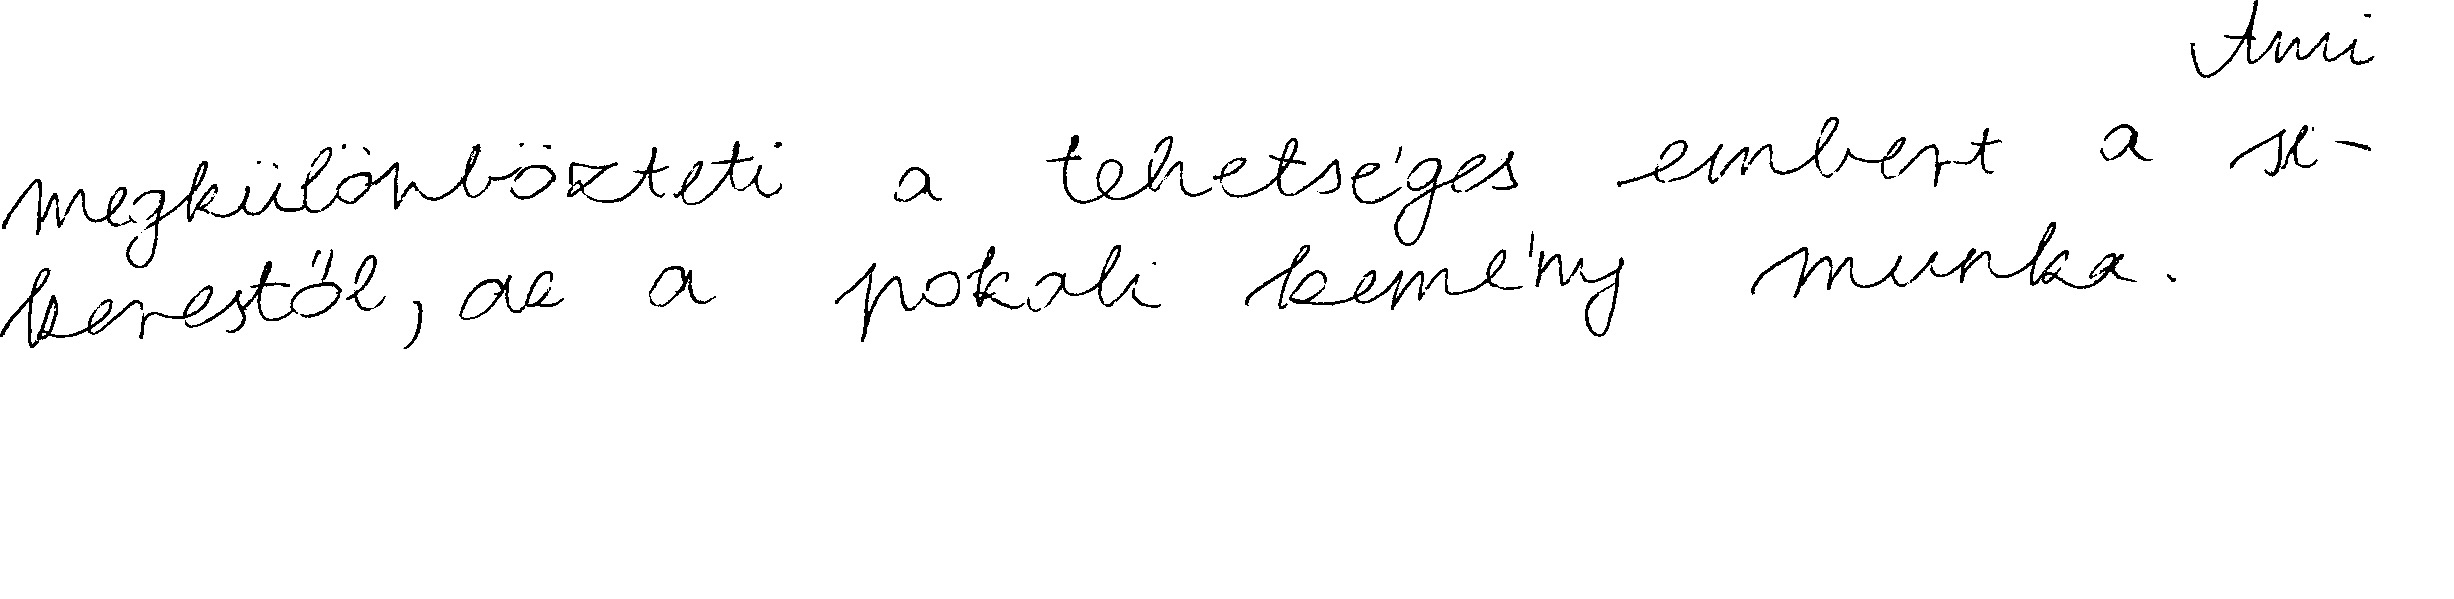 Ami
megkülönbözteti a tehetséges embert a si-
kerestől, az a pokoli kemény munka.